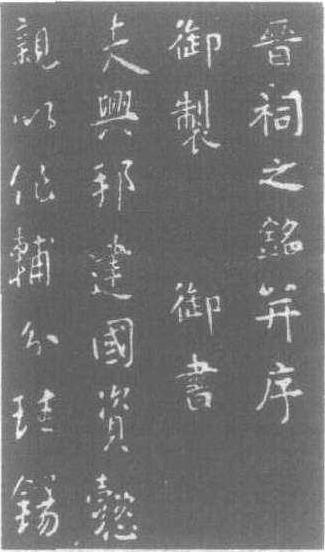 晉祠之銘并序
御製 御書
夫興邦建國資懿
親以作輔分珪錫